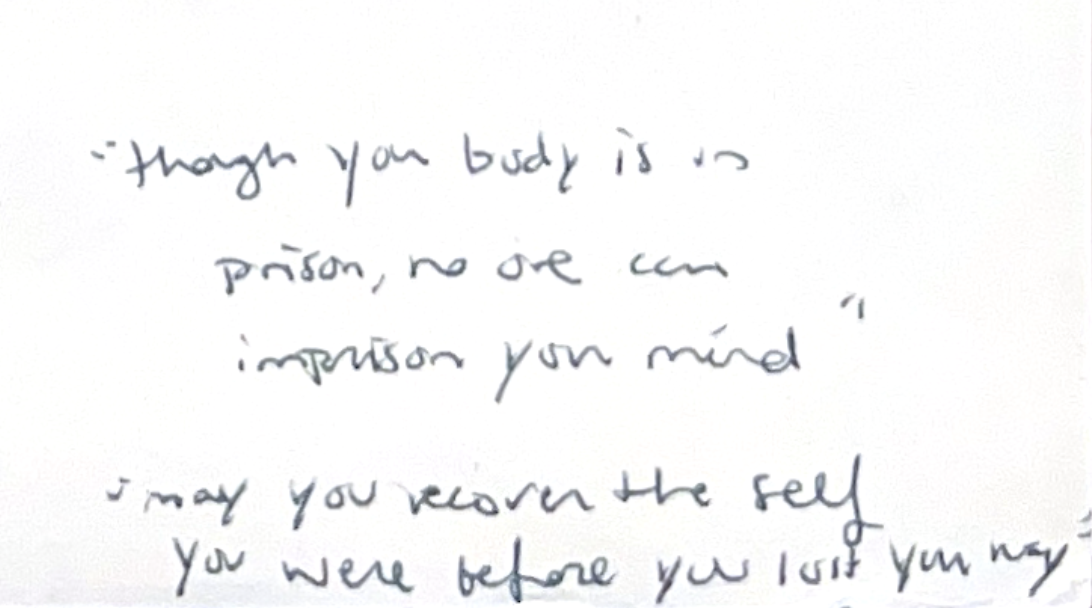 "though your body is in
prison, no one can
imprison your mind"
"may you recover the self
you were before you lost your way"